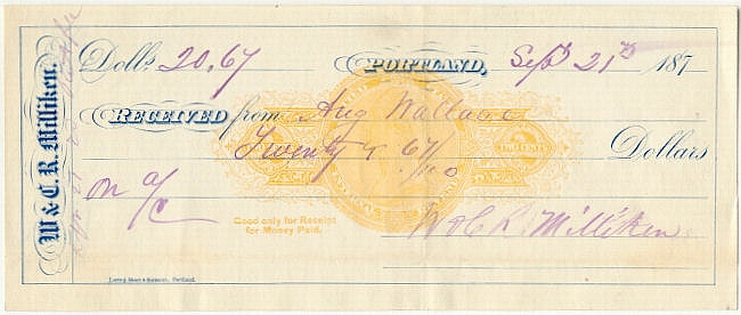 W & C. R. Milliken.
Dolls. 20.67 PORTLAND, Sept 21st 187
RECEIVED from Aug Wallace
Twenty & 67/100 Dollars
on a/c
Good only for Receipt
for Money Paid.
W & C R Milliken
Loring, Short & Harmon, Portland.